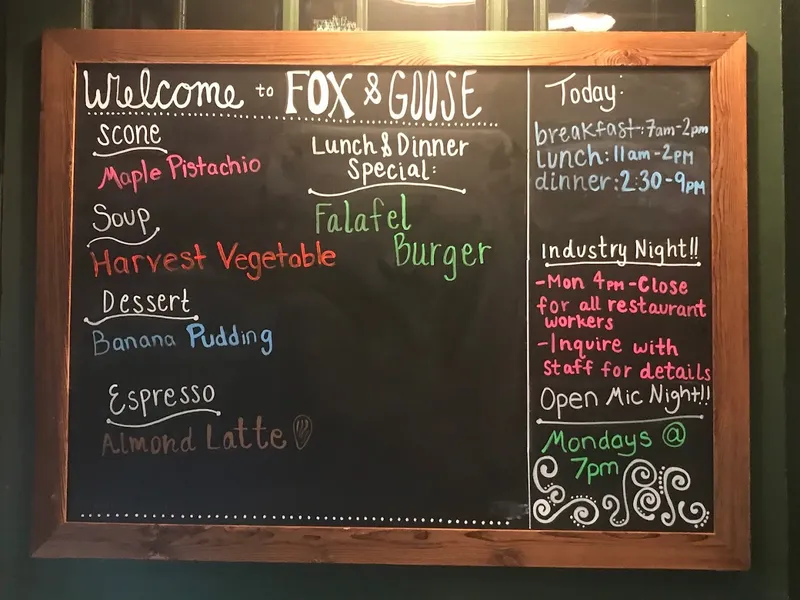 Welcome to FOX & GOOSE
Scone
Maple Pistachio
Soup
Harvest Vegetable
Dessert
Banana Pudding
Espresso
Almond Latte
Lunch & Dinner
Special:
Falafel
Burger
Today:
breakfast: 7am-2pm
lunch: 11am-2PM
dinner: 2:30-9PM
Industry Night!!
-Mon 4PM-Close
for all restaurant
workers
-Inquire with
staff for details
Open Mic Night!!
Mondays @
7pm